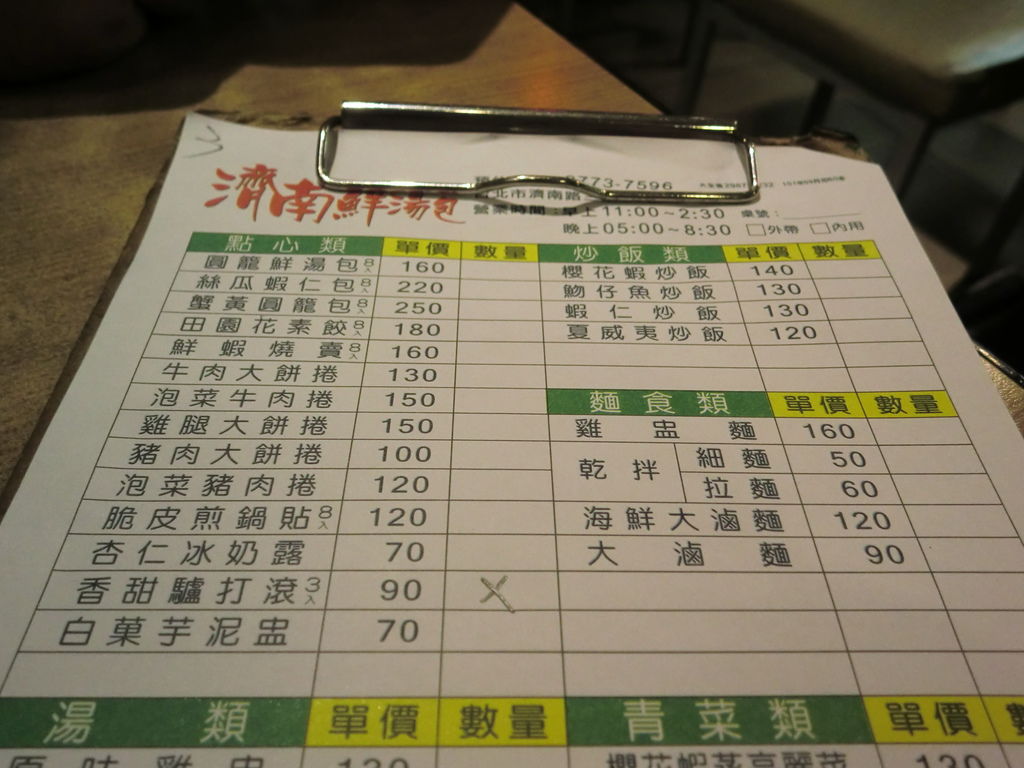 濟南鮮湯包
773-7596
北市濟南路
營業時間：早上11:00~2:30 桌號：
晚上05:00~8:30 □外帶 □內用
點心類 單價 數量
圓籠鮮湯包8入 160
絲瓜蝦仁包8入 220
蟹黃圓籠包8入 250
田園花素餃8入 180
鮮蝦燒賣8入 160
牛肉大餅捲 130
泡菜牛肉捲 150
雞腿大餅捲 150
豬肉大餅捲 100
泡菜豬肉捲 120
脆皮煎鍋貼8入 120
杏仁冰奶露 70
香甜驢打滾3入 90 X
白菓芋泥盅 70
炒飯類 單價 數量
櫻花蝦炒飯 140
魩仔魚炒飯 130
蝦仁炒飯 130
夏威夷炒飯 120
麵食類 單價 數量
雞盅麵 160
乾拌 細麵 50
拉麵 60
海鮮大滷麵 120
大滷麵 90
湯類 單價 數量
原味雞盅 130
青菜類 單價 數
櫻花蝦蒸高麗菜 130